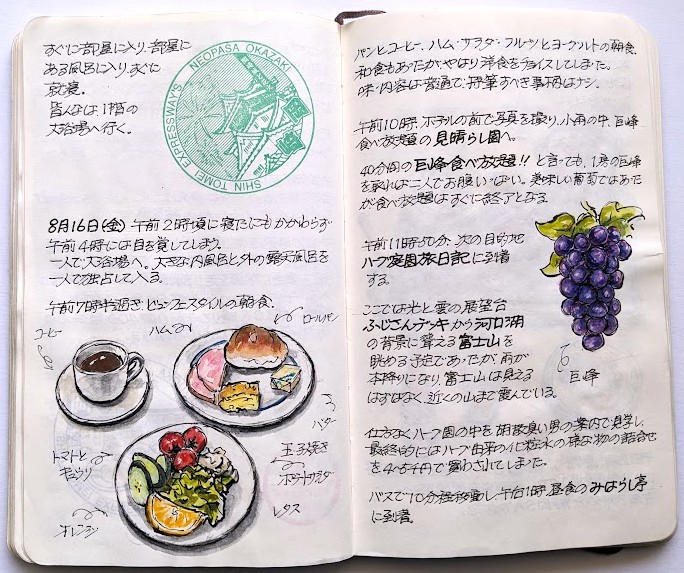 すぐに部屋に入り、部屋に
ある風呂に入り、すぐに
就寝。
皆んなは、1階の
大浴場へ行く。
NEOPASA OKAZAKI
SHIN TOMEI EXPRESSWAYS
8月16日(金) 午前2時頃に寝たにもかかわらず
午前4時には目を覚してしまう。
一人で大浴場へ。大きな内風呂と外の露天風呂を
一人で独占して入る。
午前7時半過ぎ、ビュッフェスタイルの朝食。
コーヒー
ハム
ロールパン
バター
トマトと
キュウリ
玉子焼き
ポテトサラダ
オレンジ
レタス
パンとコーヒー、ハム・サラダ・フルーツとヨーグルトの朝食。
和食もあったが、やはり洋食をチョイスしてしまう。
味・内容は普通で、特筆すべき事柄はナシ。
午前10時、ホテルの前で写真を撮り、小雨の中、巨峰
食べ放題の見晴らし園へ。
40分間の巨峰食べ放題!! と言っても、1房の巨峰
を取れば二人でお腹いっぱい。美味しい葡萄ではあった
が食べ放題はすぐに終了となる。
午前11時50分、次の目的地
ハーブ庭園旅日記に到着
する。
ここでは光と雲の展望台
ふじさんデッキから河口湖
の背景に聳える富士山を
眺める予定であったが、雨が
本降りになり、富士山は見える
はずはなく、近くの山まで霞んでいる。
巨峰
仕方なくハーブ園の中を胡散臭い男の案内で見学し、
最終的にはハーブ由来の化粧水の様な物の詰合せ
を4~5千円で買わされてしまう。
バスで10分程移動し、午后1時、昼食のみはらし亭
に到着。